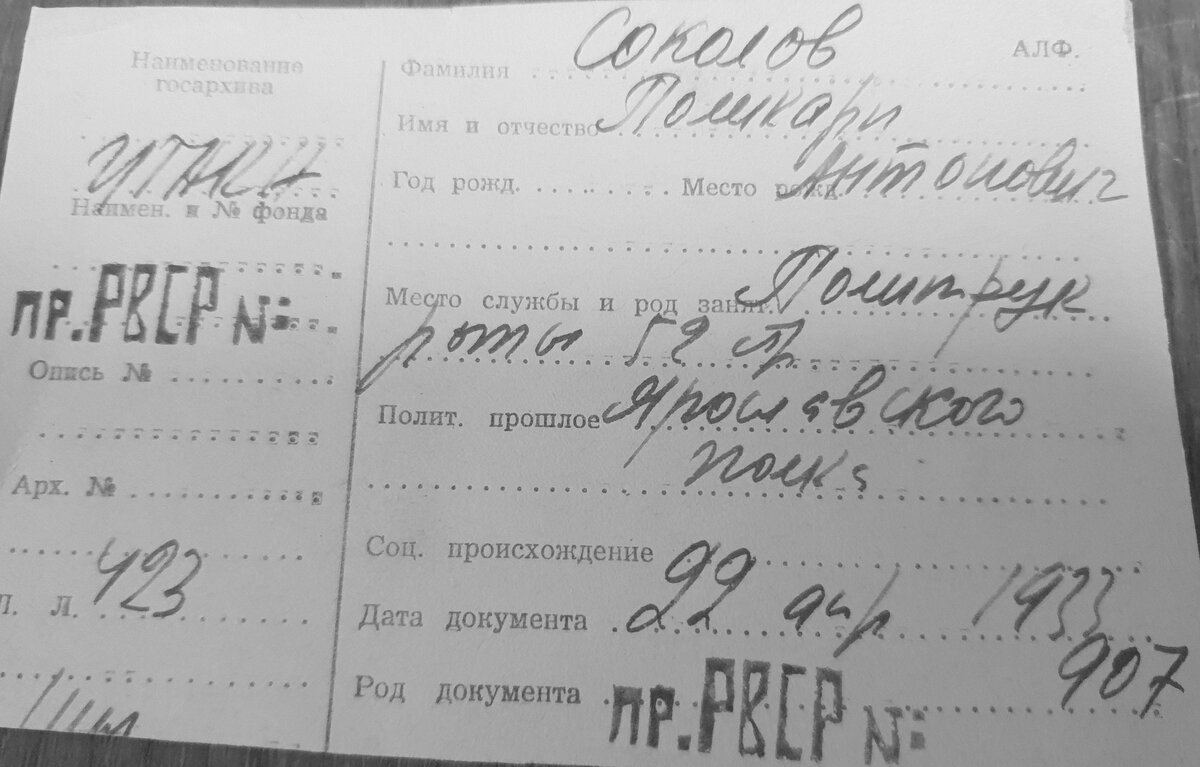 Наименование
госархива
ЦГАКА
Наимен. и № фонда
пр.РВСР №:
Опись №
Арх. №
423
Л. Л.
Соколов
АЛФ.
Фамилия
Имя и отчество Поликарп
Год рожд. Место рожд. Антонович
Место службы и род занят. Политрук
роты 52 стр
Полит. прошлое Ярославского
полка
Соц. происхождение
Дата документа 22 апр 1933
Род документа пр.РВСР №: 907